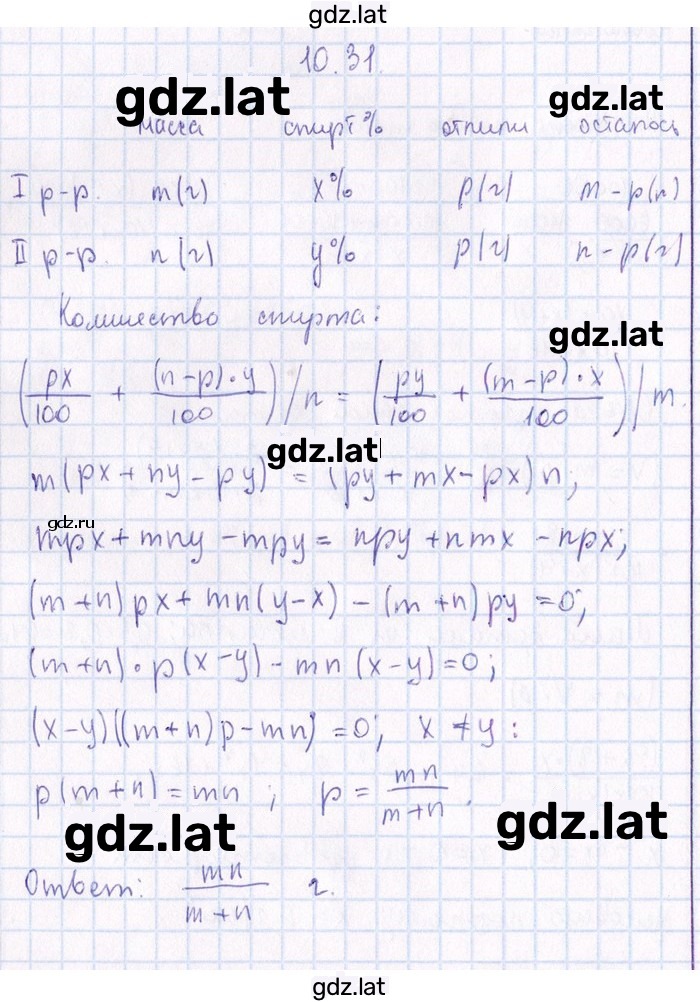 gdz.lat
10.31.
gdz.lat gdz.lat
масса спирт% отпили осталось
I р-р. m(г) x% p(г) m-p(г)
II р-р. n(г) y% p(г) n-p(г)
Количество спирта:
gdz.lat
(px/100 + (n-p)·y/100)/n = (py/100 + (m-p)·x/100)/m.
gdz.lat
m(px+ny-py) = (py+mx-px)n;
gdz.ru
mpx+mny-mpy= npy+nmx-npx;
(m+n)px+mn(y-x)-(m+n)py=0;
(m+n)·p(x-y)-mn(x-y)=0;
(x-y)((m+n)p-mn)=0; x≠y:
p(m+n)=mn; p=mn/m+n.
gdz.lat gdz.lat
Ответ: mn/m+n г.
gdz.lat